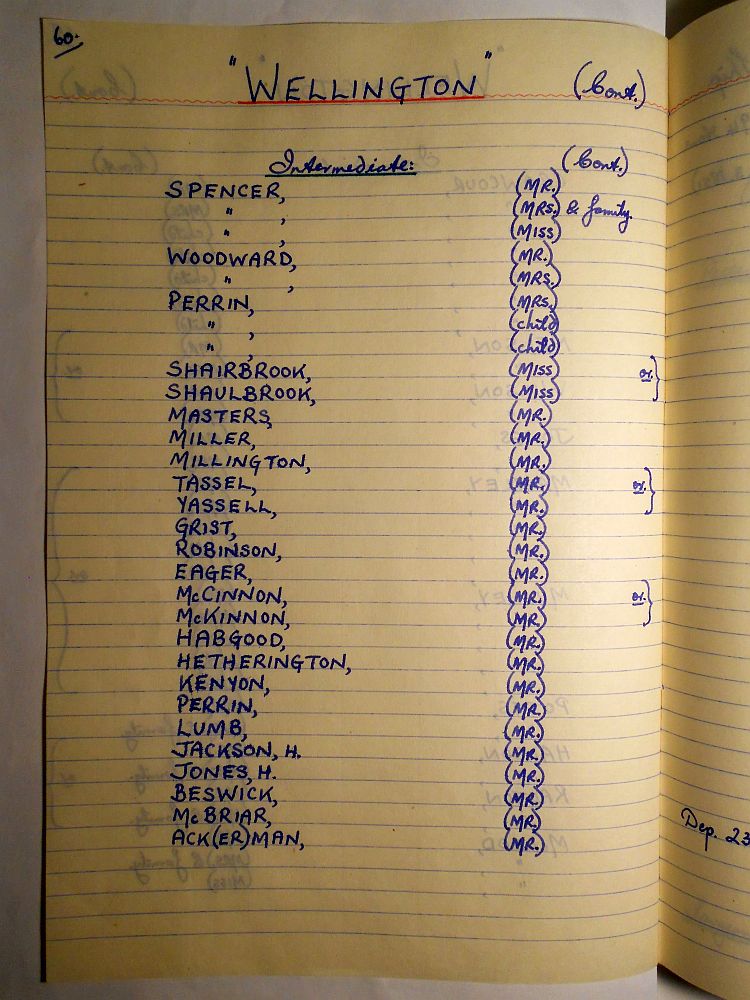 60.
"WELLINGTON" (Cont.)
Intermediate: (Cont.)
SPENCER, (MR.)
" , (MRS.) & family.
" , (MISS)
WOODWARD, (MR.)
" , (MRS.)
PERRIN, (MRS.)
" , (child)
" , (child)
SHAIRBROOK, (MISS) or. }
SHAULBROOK, (MISS)
MASTERS, (MR.)
MILLER, (MR.)
MILLINGTON, (MR.)
TASSEL, (MR.) or. }
YASSELL, (MR.)
GRIST, (MR.)
ROBINSON, (MR.)
EAGER, (MR.)
McCINNON, (MR.) or. }
McKINNON, (MR.)
HABGOOD, (MR.)
HETHERINGTON, (MR.)
KENYON, (MR.)
PERRIN, (MR.)
LUMB, (MR.)
JACKSON, H. (MR.)
JONES, H. (MR.)
BESWICK, (MR.)
McBRIAR, (MR.)
ACK(ER)MAN, (MR.)
Dep. 23